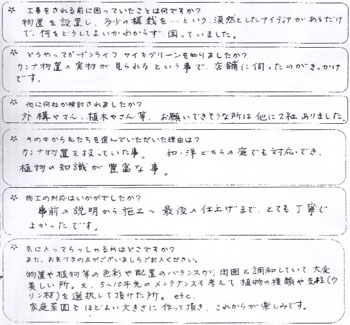 ☆ 工事をされる前に困っていたことは何ですか?
物置を設置し、多少の植栽を…という、漠然としたアイディアがあるだけ
で、何をどうしてよいかわからず、困っていました。
☆ どうやってガーデンライフ サイキグリーンを知りましたか?
カンナ物置の実物が見られるという事で、店舗に伺ったのがきっかけ
です。
☆ 他に何社か検討されましたか?
外構やさん、植木やさん等、お願いできそうな所は他に2社ありました。
☆ その中から私たちを選んでいただいた理由は?
カンナ物置を扱っていた事。 和・洋どちらの庭でも対応でき、
植物の知識が豊富な事。
☆ 施工の対応はいかがでしたか?
事前の説明から施工〜最後の仕上げまで、とても丁寧で
よかったです。
☆ 気に入ってらっしゃるれはどこですか?
また、お気づきの点がございましたらご記入ください。
物置や植物等の色彩や配置のバランスが、周囲と調和していて大変
美しい所。又、5〜10年先のメンテナンスも考えて植物の種類や支柱(ウ
リン材)を選択して頂けた所。etc.
家庭菜園もほどよい大きさに作って頂き、これからが楽しみです。